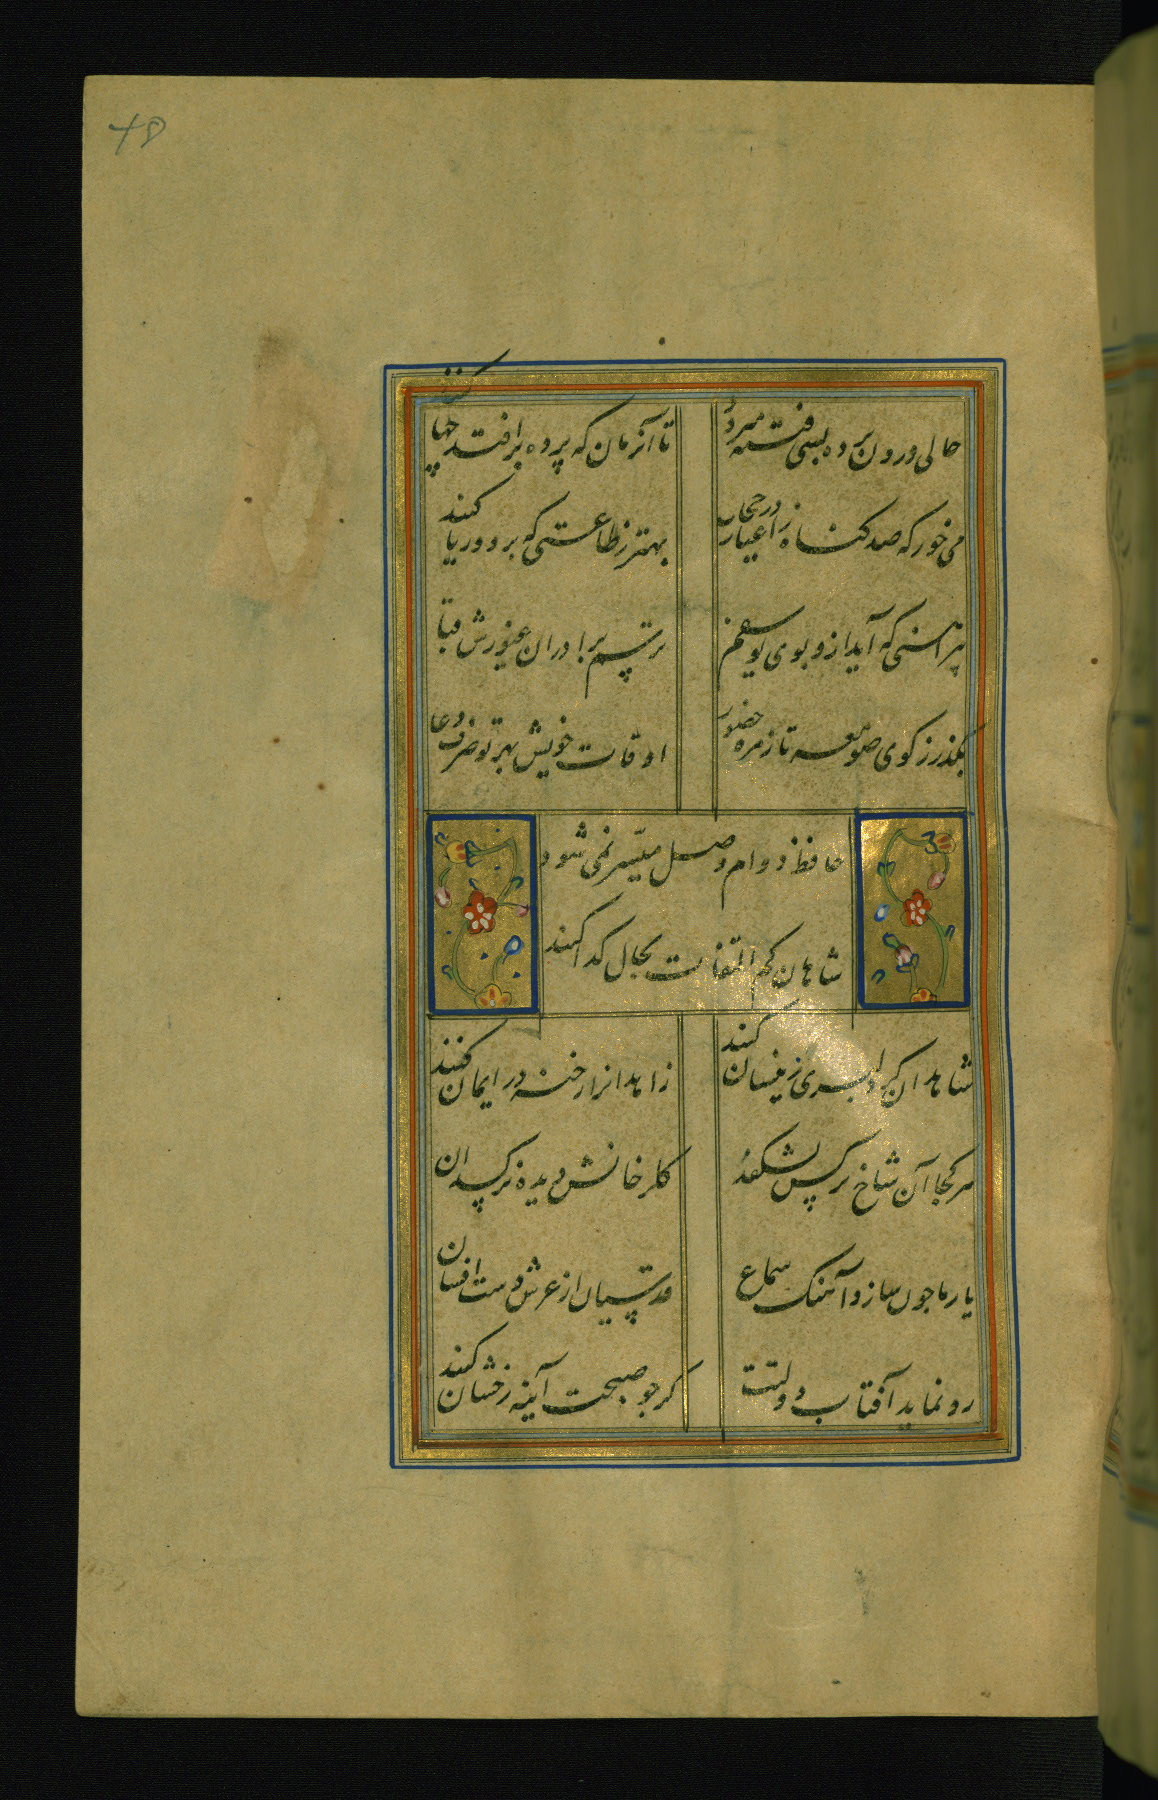 48
حالی درون پرده بسی فتنه میرود
تا آنزمان که پرده برافتد چها کنند
می خور که صد گناه ز اغیار در حجاب
بهتر ز طاعتی که برو و ریا کنند
پیراهنی که آید ازو بوی یوسفم
ترسم برادران غیورش قبا
بگذر ز کوی صومعه تا زمره حضور
اوقات خویش بهر تو صرف دعا
حافظ دوام وصل میسر نمی شود
شاهان کم التفات بحال گدا کنند
شاهدان گر دلبری زینسان کنند
زاهدانرا رخنه در ایمان کنند
هر کجا آن شاخ نرگس بشکفد
گلرخانش دیده نرگسدان
یار ما چون سازد آهنگ سماع
قدسیان از عرش دست افشان
رو نماید آفتاب دولتت
گر چو صبحت آینه رخشان کنند